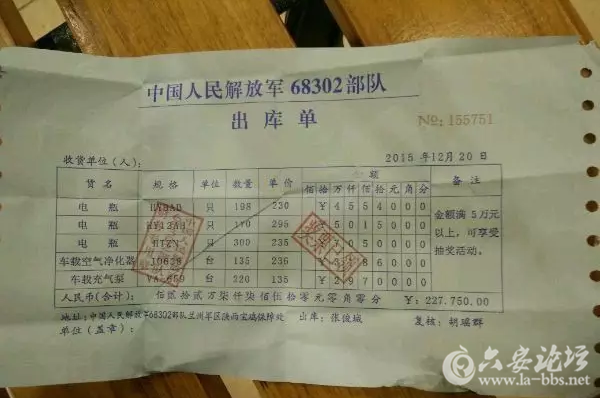 中国人民解放军 68302部队
出库单
No: 155751
收货单位(人): 2015 年12月 20日
货名 规格 单位 数量 单价 金额 备注
佰 拾 万 仟 佰 拾 元 角 分
电 瓶 只 198 230 ¥ 4 5 5 4 0 0 0
电 瓶 只 170 295 5 0 1 5 0 0 0
电 瓶 只 300 235 0 5 0 0 0 0
车载空气净化器 台 135 236 8 6 0 0 0
车载充气泵 台 220 135 ¥ 2 9 7 0 0 0 0
金额满 5 万元
以上,可享受
抽奖活动。
人民币(合计): 佰贰拾贰万柒仟柒佰伍拾零元零角零分 ¥: 227.750.00
地址:中国人民解放军68302部队兰州军区陕西宝鸡保障处 出库: 张俊城 复核: 胡瑶群
单位(盖章):
六安论坛
www.la-bbs.net